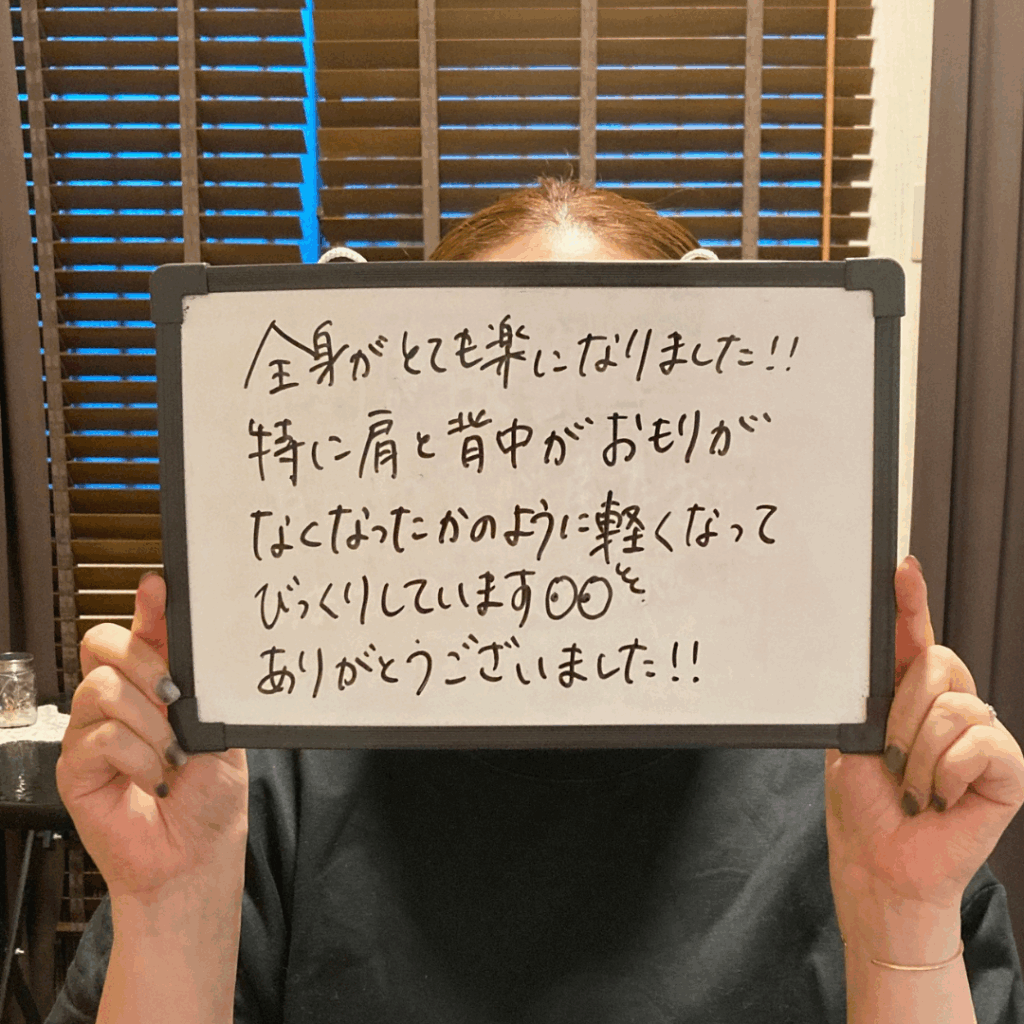 全身がとても楽になりました!!
特に肩と背中がおもりが
なくなったかのように軽くなって
びっくりしています
ありがとうございました!!